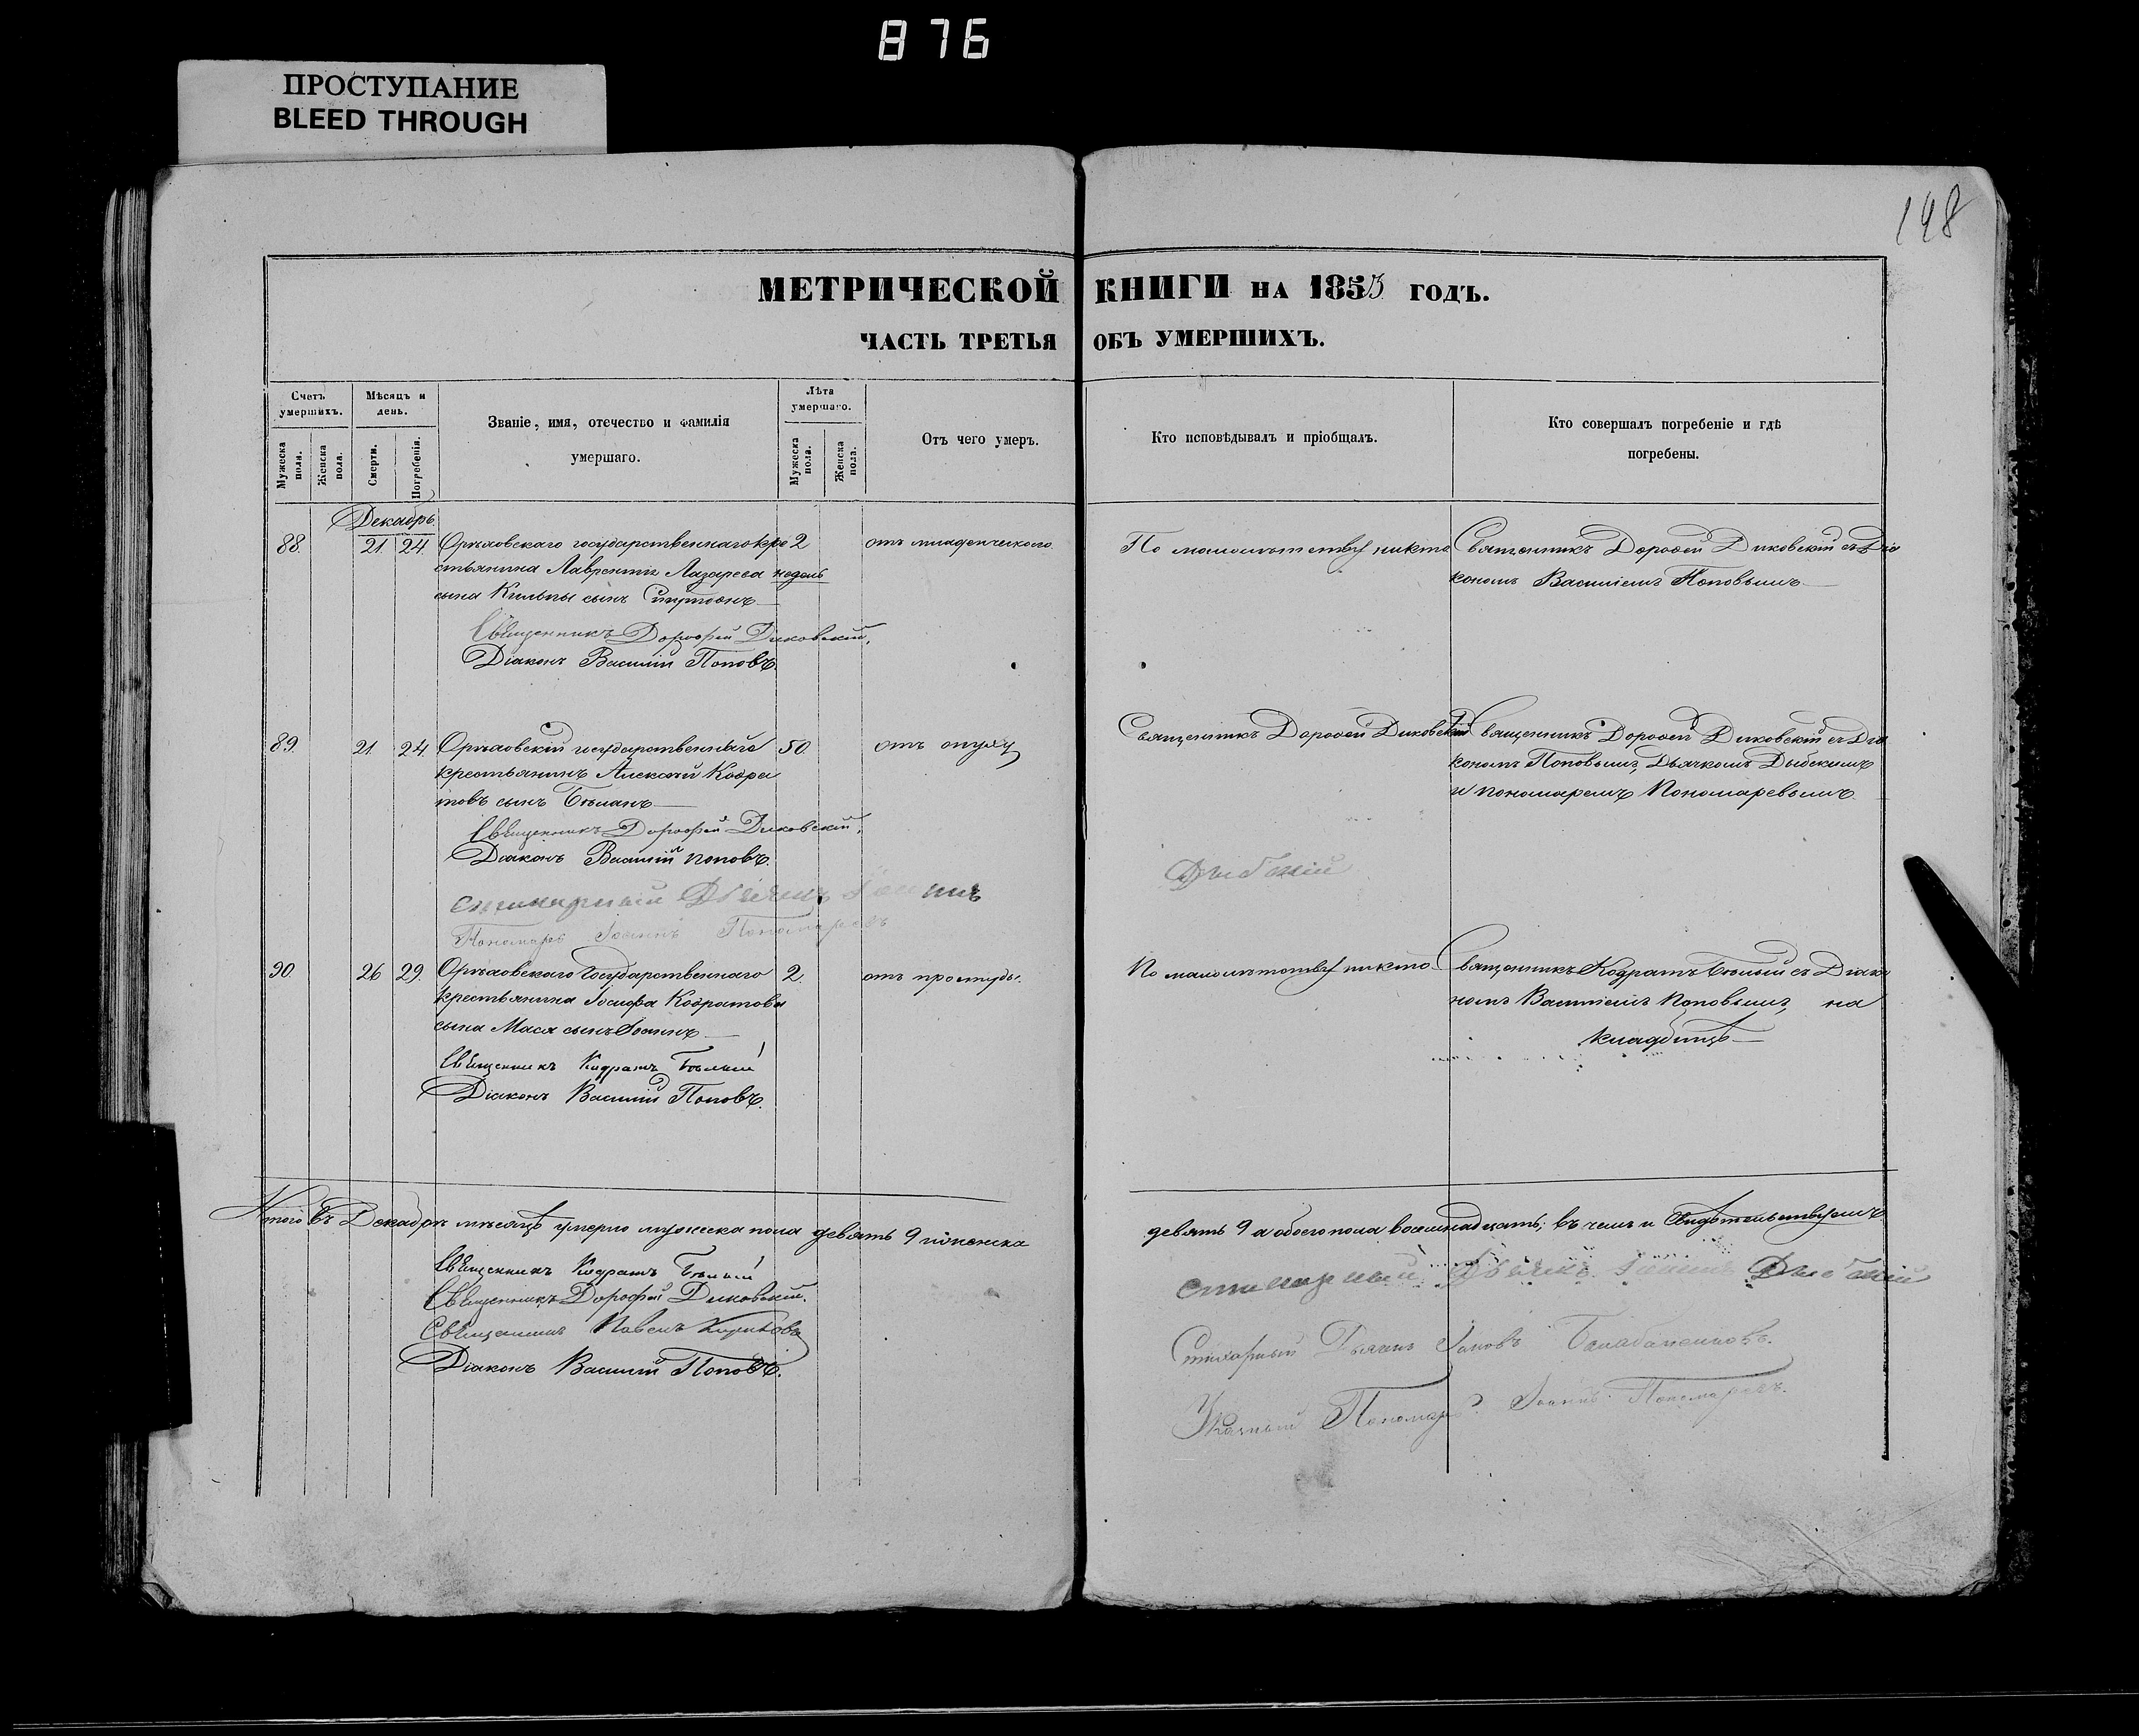 876
ПРОСТУПАНИЕ
BLEED THROUGH
198
МЕТРИЧЕСКОЙ КНИГИ НА 1853 ГОДЪ.
ЧАСТЬ ТРЕТЬЯ ОБЪ УМЕРШИХЪ.
Счетъ умершихъ.
Мужеска пола.
Женска пола.
Мѣсяцъ и день.
Смерти.
Погребенія.
Званіе, имя, отечество и фамилія умершаго.
Лѣта умершаго.
Мужеска пола.
Женска пола.
Отъ чего умеръ.
Кто исповѣдывалъ и пріобщалъ.
Кто совершалъ погребеніе и гдѣ погребены.
Декабрь
88. 21 24 Орѣховскаго государственнаго кре 2 отъ младенческого По малолѣтству никто Священникъ Дорофей Диковскій съ Діа
стьянина Лаврентія Лазарева недѣль кономъ Василіемъ Поповымъ
сына Кильпы сынъ
Священникъ Дорофей Диковскій.
Діаконъ Василій Поповъ.
89. 21. 24. Орѣховскій государственный 50. отъ опуху Священникъ Дорофей Диковскій Священникъ Дорофей Диковскій съ Діа
крестьянинъ Алексѣй Кодра кономъ Поповымъ, Дьячкомъ Дыбскимъ
товъ сынъ Бѣланъ и пономаремъ Пономаревымъ.
Священникъ Дорофей Диковскій.
Діаконъ Василій Поповъ.
стихарный Дьячекъ Іоаннъ Дыбскій
Пономарь Іоаннъ Пономаревъ
90. 26 29. Орѣховскаго Государственнаго 2. отъ простуды. По малолѣтству никто Священникъ Кодратъ Бѣлый съ Діако
крестьянина Іосифа Кодратова номъ Василіемъ Поповымъ, на
сына Мася сынъ Іоаннъ кладбищѣ
Священникъ Кодратъ Бѣлый
Діаконъ Василій Поповъ.
Итого въ Декабрѣ мѣсяцѣ умерло мужеска пола девять 9 женска девять 9 а обоего пола восемнадцать; въ чемъ и свидѣтельствуемъ
Священникъ Кодратъ Бѣлый
Священникъ Дорофей Диковскій.
Священникъ Павелъ
Діаконъ Василій Поповъ.
стихарный Дьячекъ Іоаннъ Дыбскій
Стихарный Дьячекъ Іаковъ
Указный Пономарь Іоаннъ Пономаревъ.